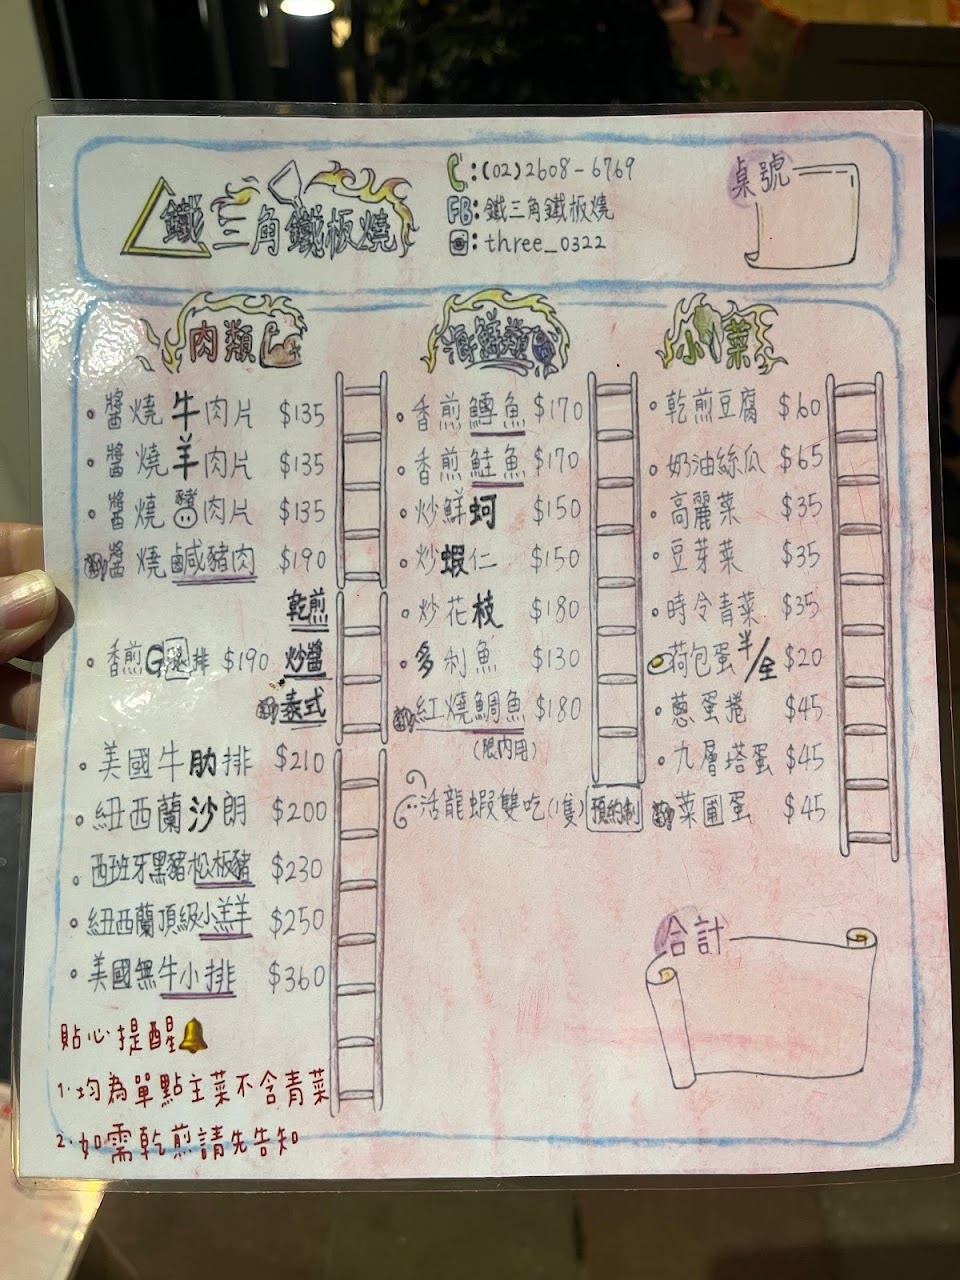 鐵三角鐵板燒
:(02)2608-6769
FB:鐵三角鐵板燒
:three_0322
桌號
肉類
醬燒牛肉片 $135
醬燒羊肉片 $135
醬燒豬肉片 $135
醬燒鹹豬肉 $190
香煎G腿排 $190
乾煎
炒醬
泰式
美國牛肋排 $210
紐西蘭沙朗 $200
西班牙黑豬松板豬 $230
紐西蘭頂級小羔羊 $250
美國無牛小排 $360
海鮮類
香煎鱈魚 $170
香煎鮭魚 $170
炒鮮蚵 $150
炒蝦仁 $150
炒花枝 $180
多利魚 $130
紅燒鯛魚 $180
(限內用)
活龍蝦雙吃(1隻) 預約制
小菜
乾煎豆腐 $60
奶油絲瓜 $65
高麗菜 $35
豆芽菜 $35
時令青菜 $35
荷包蛋半/全 $20
蔥蛋捲 $45
九層塔蛋 $45
菜圃蛋 $45
合計
貼心提醒
1.均為單點主菜不含青菜
2.如需乾煎請先告知